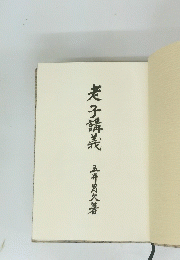 老子講義
五井昌久著